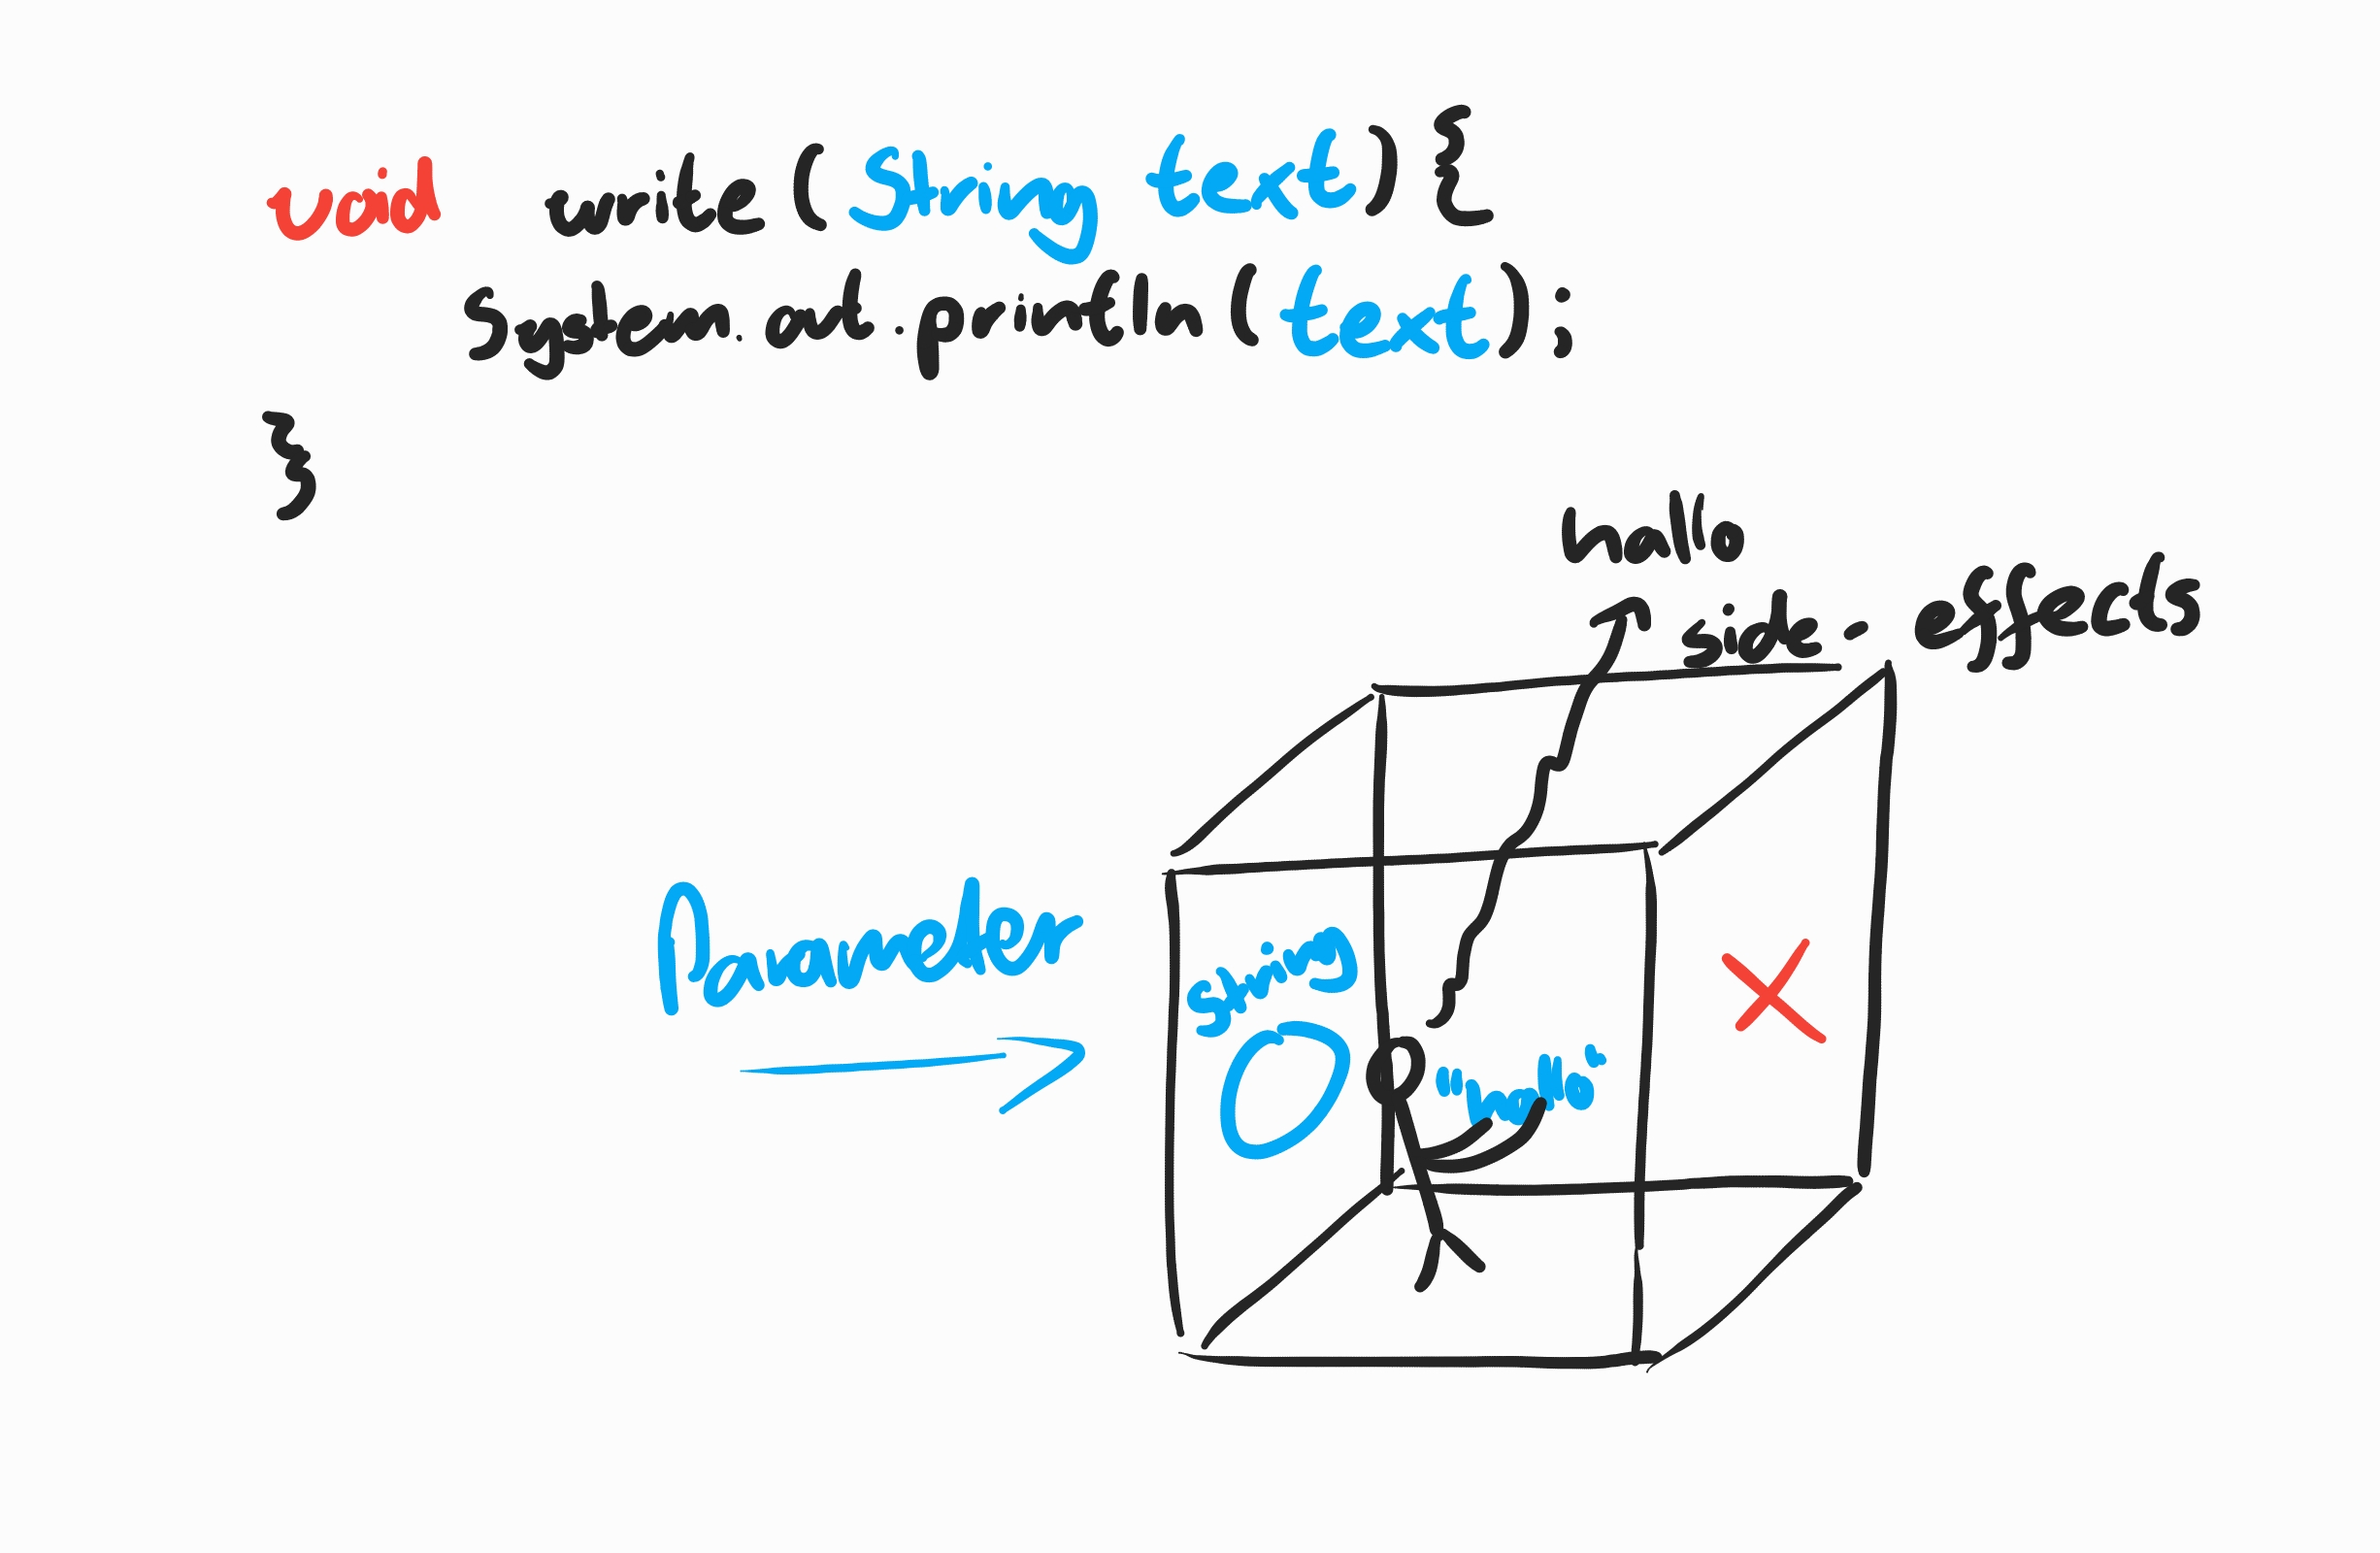 void write (String text) {
System.out.println (text);
}
hallo
side-effects
Parameter
String
"hallo"